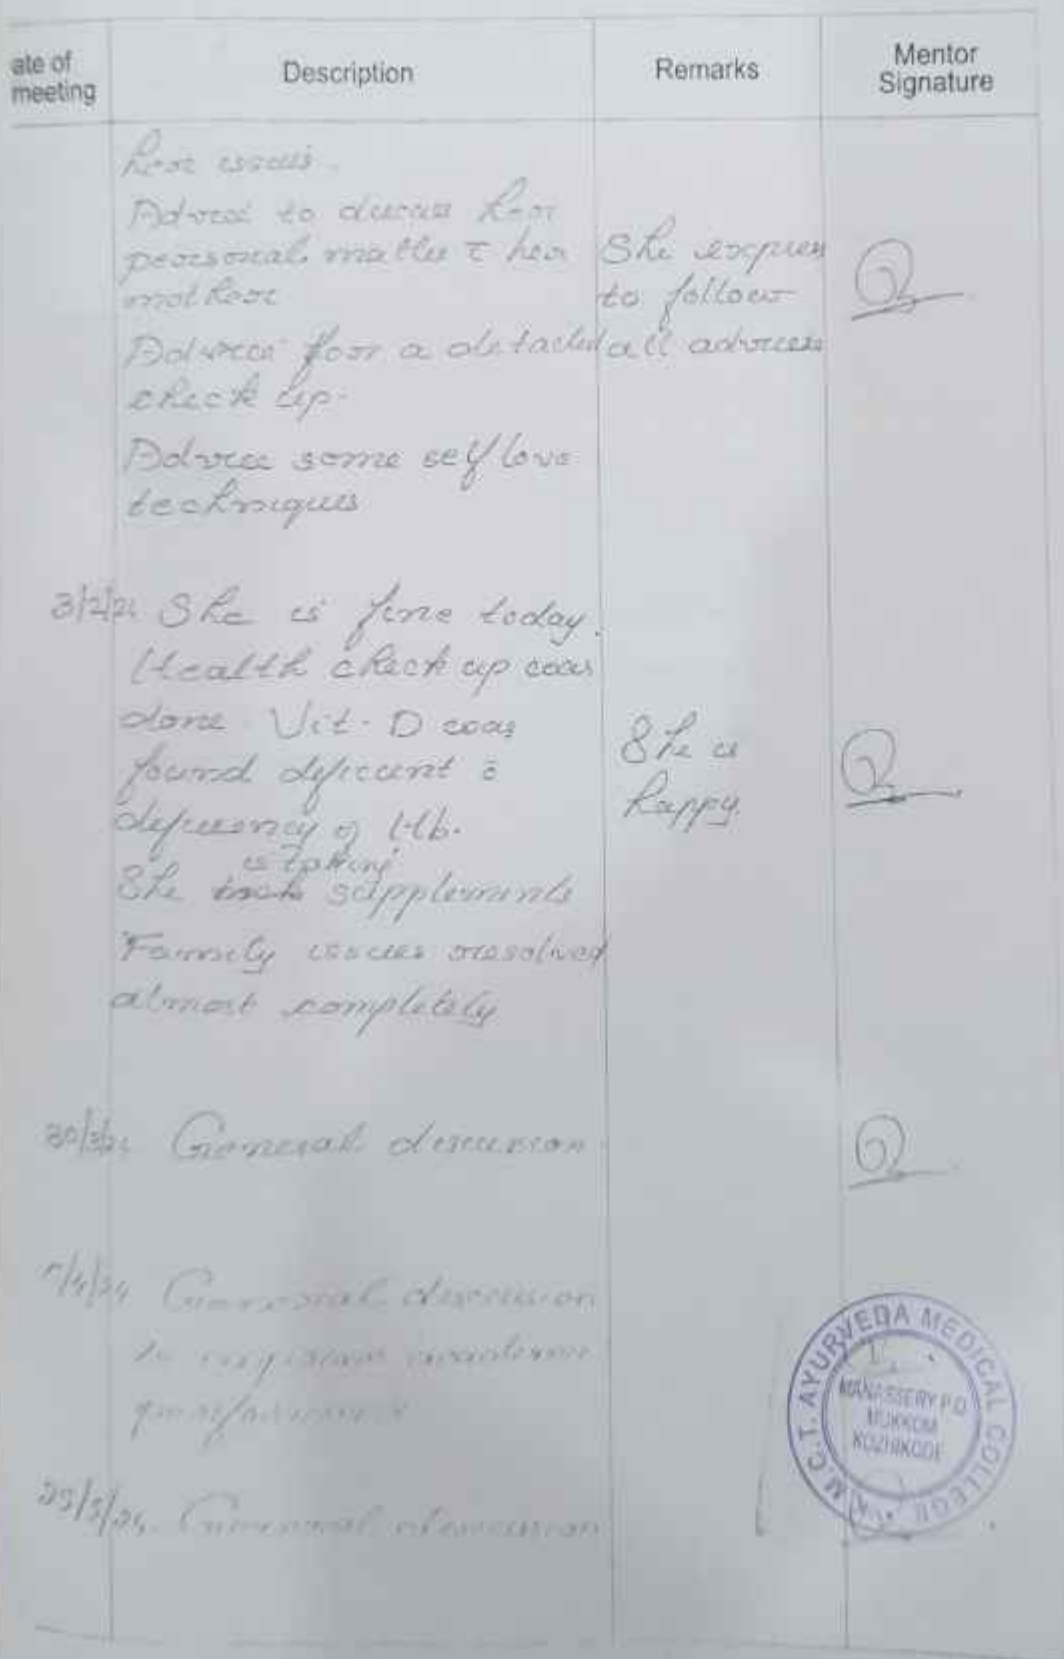 ate of meeting
Description
Remarks
Mentor Signature
her issues.
Advice to discuss her
personal matter c̄ her
mother
She express
to follow
all advices
Advice for a detailed
check up.
Advice some self love
techniques
3/2/24 She is fine today.
Health check up was
done. Vit. D was
found deficient c̄
deficiency of Hb.
is taking
She supplements
Family issues resolved
almost completely
She is
happy.
30/3/24 General discussion
/4/24 General discussion
to improve academic
performance
29/5/24 General discussion
K.M.C.T. AYURVEDA MEDICAL COLLEGE
MANASSERY P.O
MUKKOM
KOZHIKODE